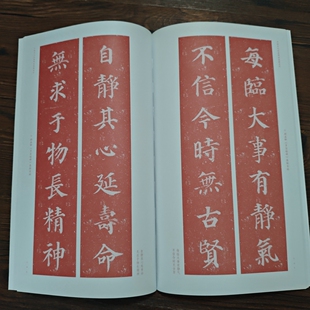 每臨大事有靜氣
不信今時無古賢
自靜其心延壽命
無求于物長精神